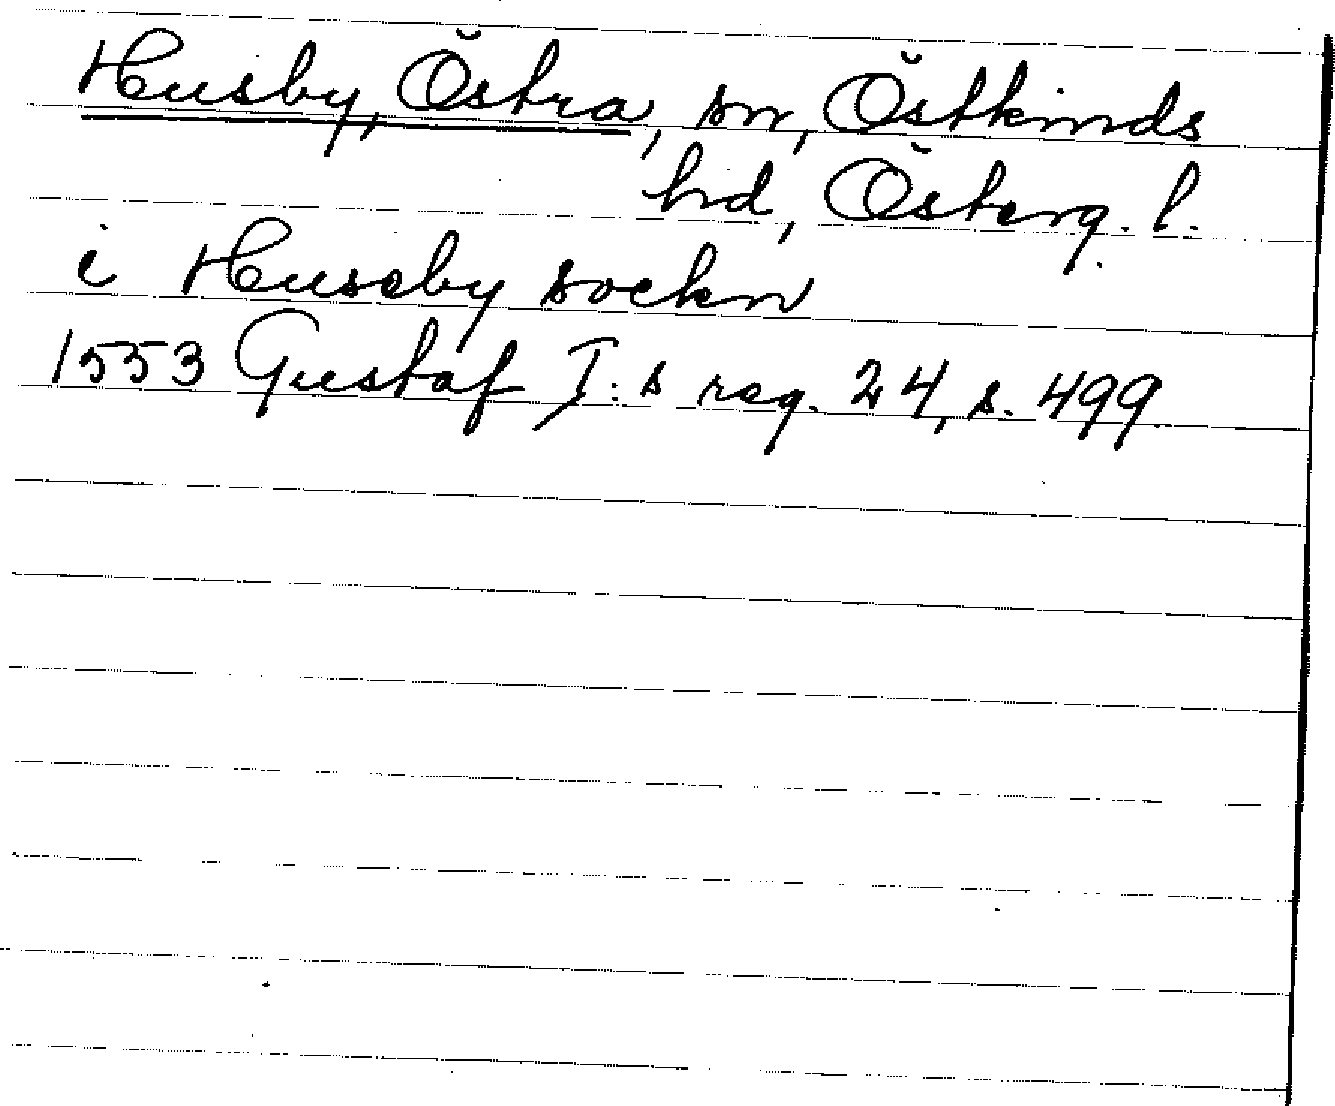 Husby, Östra, sn, Östkinds
hd, Österg. l.
i Huseby sockn
1553 Gustaf I:s reg. 24, s. 499